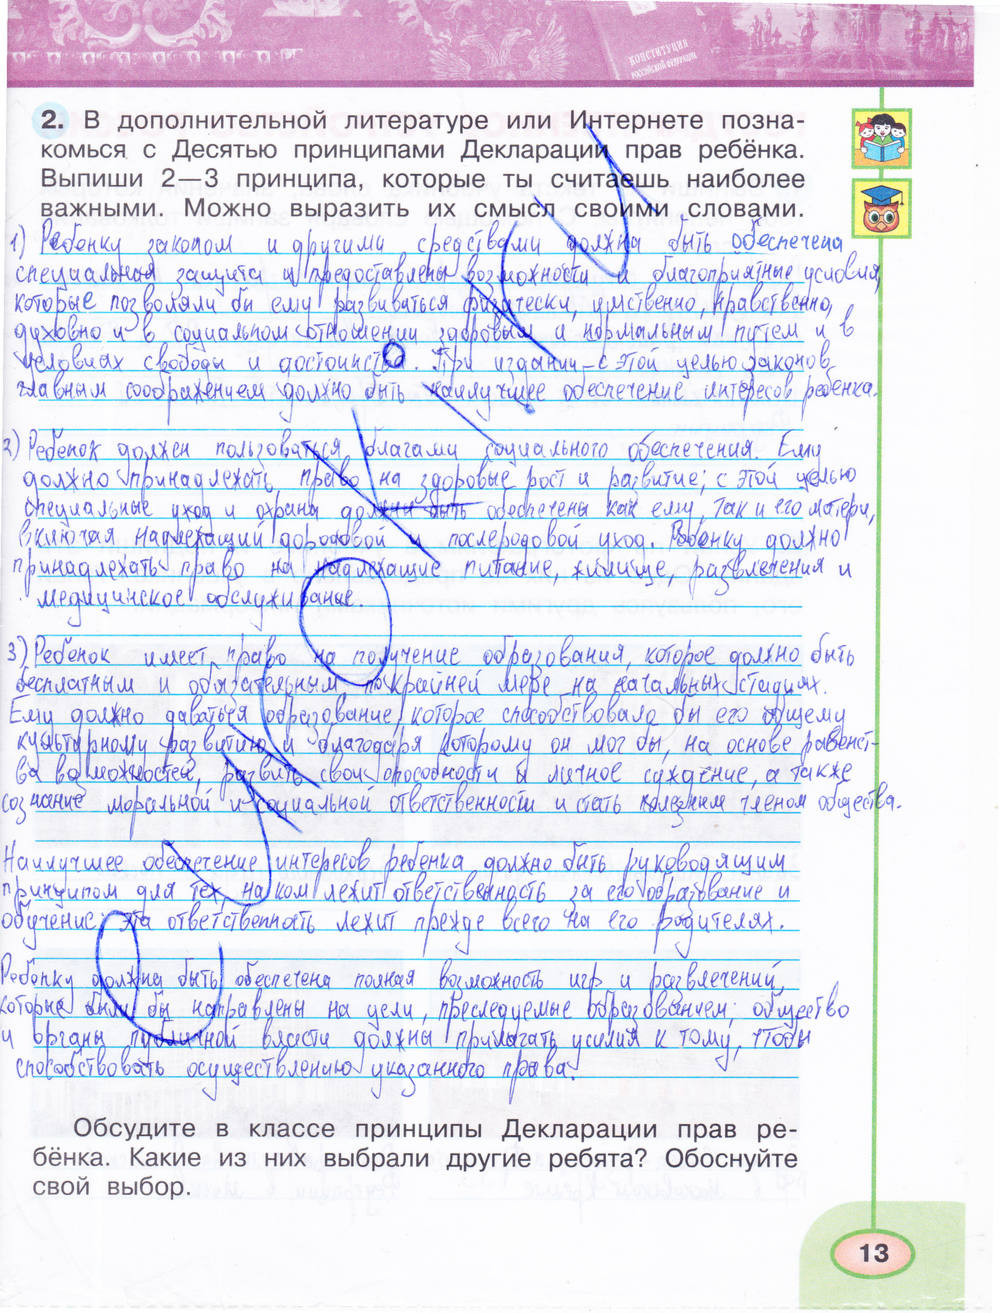 КОНСТИТУЦИЯ
РОССИЙСКОЙ ФЕДЕРАЦИИ
2. В дополнительной литературе или Интернете позна-
комься с Десятью принципами Декларации прав ребёнка.
Выпиши 2—3 принципа, которые ты считаешь наиболее
важными. Можно выразить их смысл своими словами.
1) Ребенку законом и другими средствами должна быть обеспечена
специальная защита и предоставлены возможности и благоприятные условия,
которые позволяли бы ему развиваться физически, умственно, нравственно,
духовно и в социальном отношении здоровым и нормальным путем и в
условиях свободы и достоинства. При издании с этой целью законов
главным соображением должно быть наилучшее обеспечение интересов ребенка.
2) Ребенок должен пользоваться благами социального обеспечения. Ему
должно принадлежать право на здоровые рост и развитие; с этой целью
специальные уход и охрана должны быть обеспечены как ему, так и его матери,
включая надлежащий дородовой и послеродовой уход. Ребенку должно
принадлежать право на надлежащие питание, жилище, развлечения и
медицинское обслуживание.
3) Ребенок имеет право на получение образования, которое должно быть
бесплатным и обязательным по крайней мере на начальных стадиях.
Ему должно даваться образование которое способствовало бы его общему
культурному развитию и благодаря которому он мог бы, на основе равенст-
ва возможностей, развить свои способности и личное суждение, а также
сознание моральной и социальной ответственности и стать полезным членом общества.
Наилучшее обеспечение интересов ребенка должно быть руководящим
принципом для тех, на ком лежит ответственность за его образование и
обучение; эта ответственность лежит прежде всего на его родителях.
Ребенку должна быть обеспечена полная возможность игр и развлечений,
которые были бы направлены на цели, преследуемые образованием; общество
и органы публичной власти должны прилагать усилия к тому, чтобы
способствовать осуществлению указанного права.
Обсудите в классе принципы Декларации прав ре-
бёнка. Какие из них выбрали другие ребята? Обоснуйте
свой выбор.
13